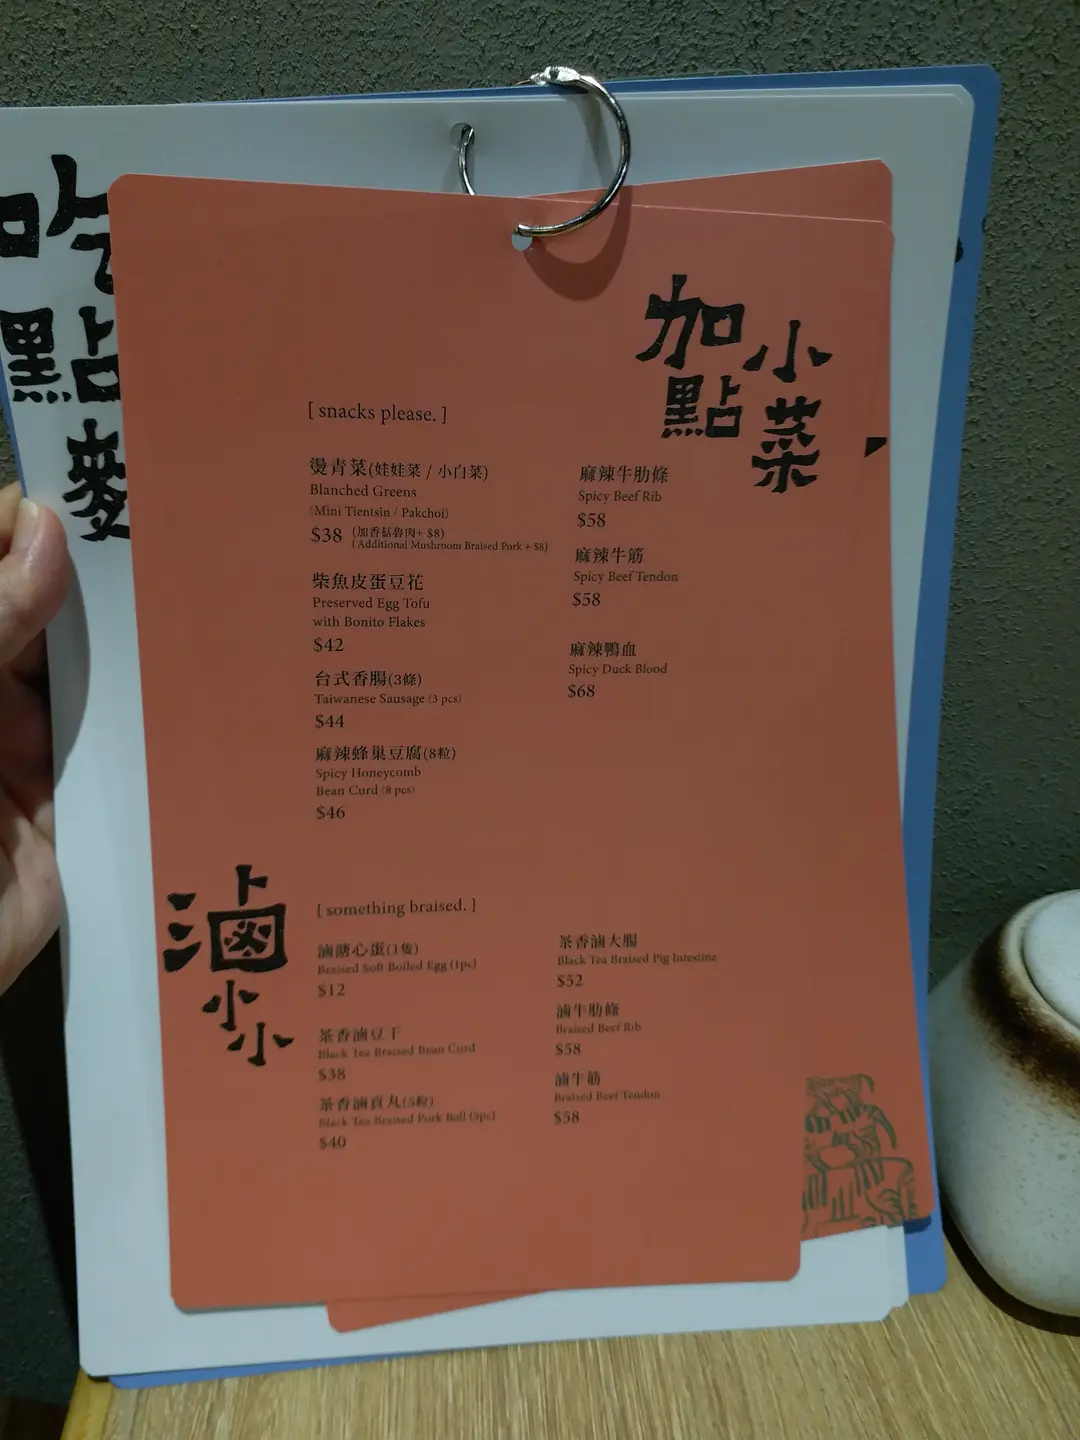 吃
點
麥
加點
小菜
[ snacks please. ]
燙青菜(娃娃菜 / 小白菜)
Blanched Greens
(Mini Tientsin / Pakchoi)
$38 (加香菇魯肉+ $8)
( Additional Mushroom Braised Pork + $8)
柴魚皮蛋豆花
Preserved Egg Tofu
with Bonito Flakes
$42
台式香腸(3條)
Taiwanese Sausage (3 pcs)
$44
麻辣蜂巢豆腐(8粒)
Spicy Honeycomb
Bean Curd (8 pcs)
$46
麻辣牛肋條
Spicy Beef Rib
$58
麻辣牛筋
Spicy Beef Tendon
$58
麻辣鴨血
Spicy Duck Blood
$68
滷小小
[ something braised. ]
滷溏心蛋(1隻)
Braised Soft Boiled Egg (1pc)
$12
茶香滷豆干
Black Tea Braised Bean Curd
$38
茶香滷貢丸(5粒)
Black Tea Braised Pork Ball (5pc)
$40
茶香滷大腸
Black Tea Braised Pig Intestine
$52
滷牛肋條
Braised Beef Rib
$58
滷牛筋
Braised Beef Tendon
$58